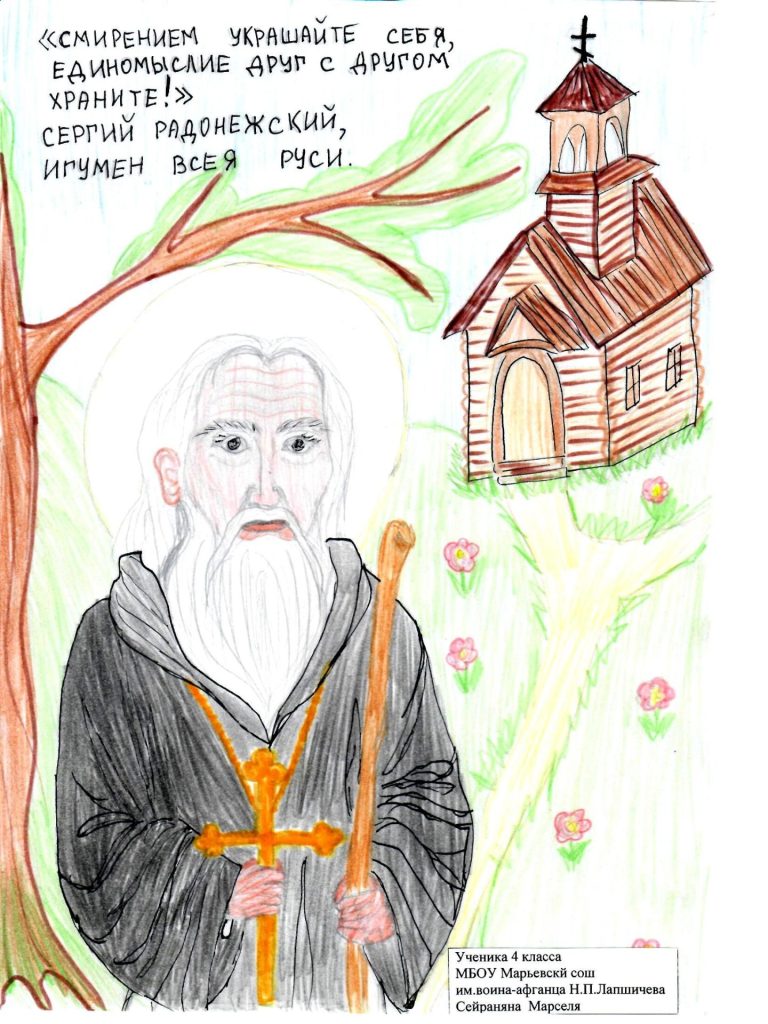 «СМИРЕНИЕМ УКРАШАЙТЕ СЕБЯ,
ЕДИНОМЫСЛИЕ ДРУГ С ДРУГОМ
ХРАНИТЕ!»
СЕРГИЙ РАДОНЕЖСКИЙ,
ИГУМЕН ВСЕЯ РУСИ.
Ученика 4 класса
МБОУ Марьевскй сош
им.воина-афганца Н.П.Лапшичева
Сейраняна Марселя